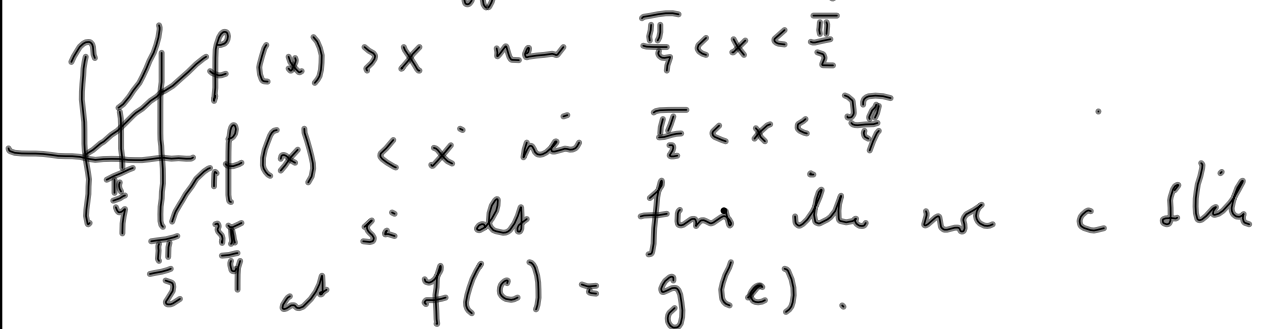 f(x) > x når π/4 < x < π/2
f(x) < x når π/2 < x < 3π/4
π/4
π/2
3π/4
så det finns ikke noe c slik
at f(c) = g(c).